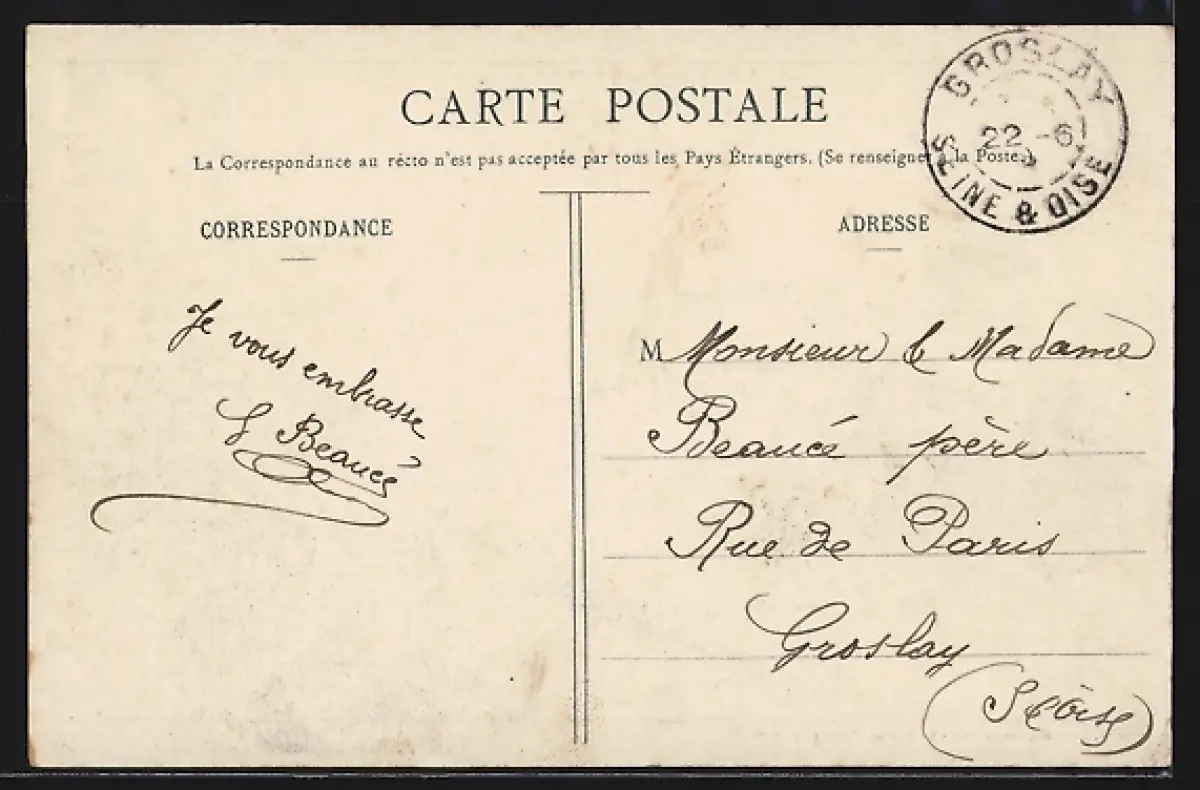 CARTE POSTALE
La Correspondance au recto n'est pas acceptée par tous les Pays Étrangers. (Se renseigner à la Poste.)
GROSLAY
22 -6
SEINE & OISE
CORRESPONDANCE
ADRESSE
Je vous embrasse
Beaucé
M Monsieur & Madame
Beaucé père
Rue de Paris
Groslay
(S & Oise)